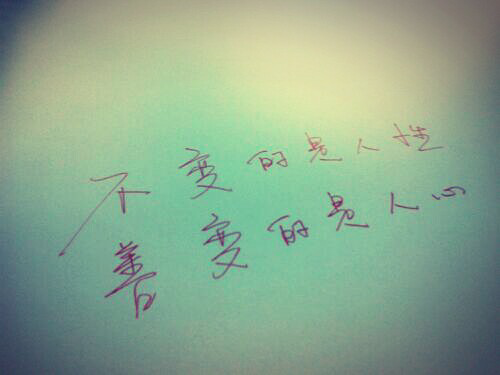 不变的是人性
善变的是人心